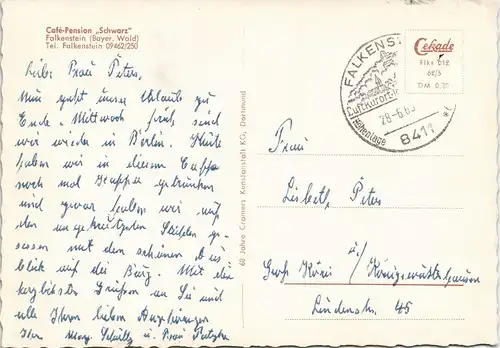 Café-Pension „Schwarz"
Falkenstein (Bayer. Wald)
Tel. Falkenstein 09462/250
Liebe Frau Peters,
Nun geht unser Urlaub zu
Ende. Mittwoch früh sind
wir wieder in Berlin. Heute
haben wir in diesem Caffe
noch mal Kaffee getrunken
und zwar haben wir auf
den angekreuzten Stühlen ge-
sessen mit dem schönen Aus
blick auf die Burg. Mit den
herzlichsten Grüßen an Sie und
alle Ihren lieben Angehörigen
Ihre Marg. Schultz u. Frau
60 Jahre Cramers Kunstanstalt KG, Dortmund
FALKENST
Luftkurort
Höhenlage
28-6.65
8411
Cekade
Flks 012
62/5
DM 0,30
Frau
Lisbeth Peters
Groß Köris b/ Königswusterhausen
Lindenstr. 45